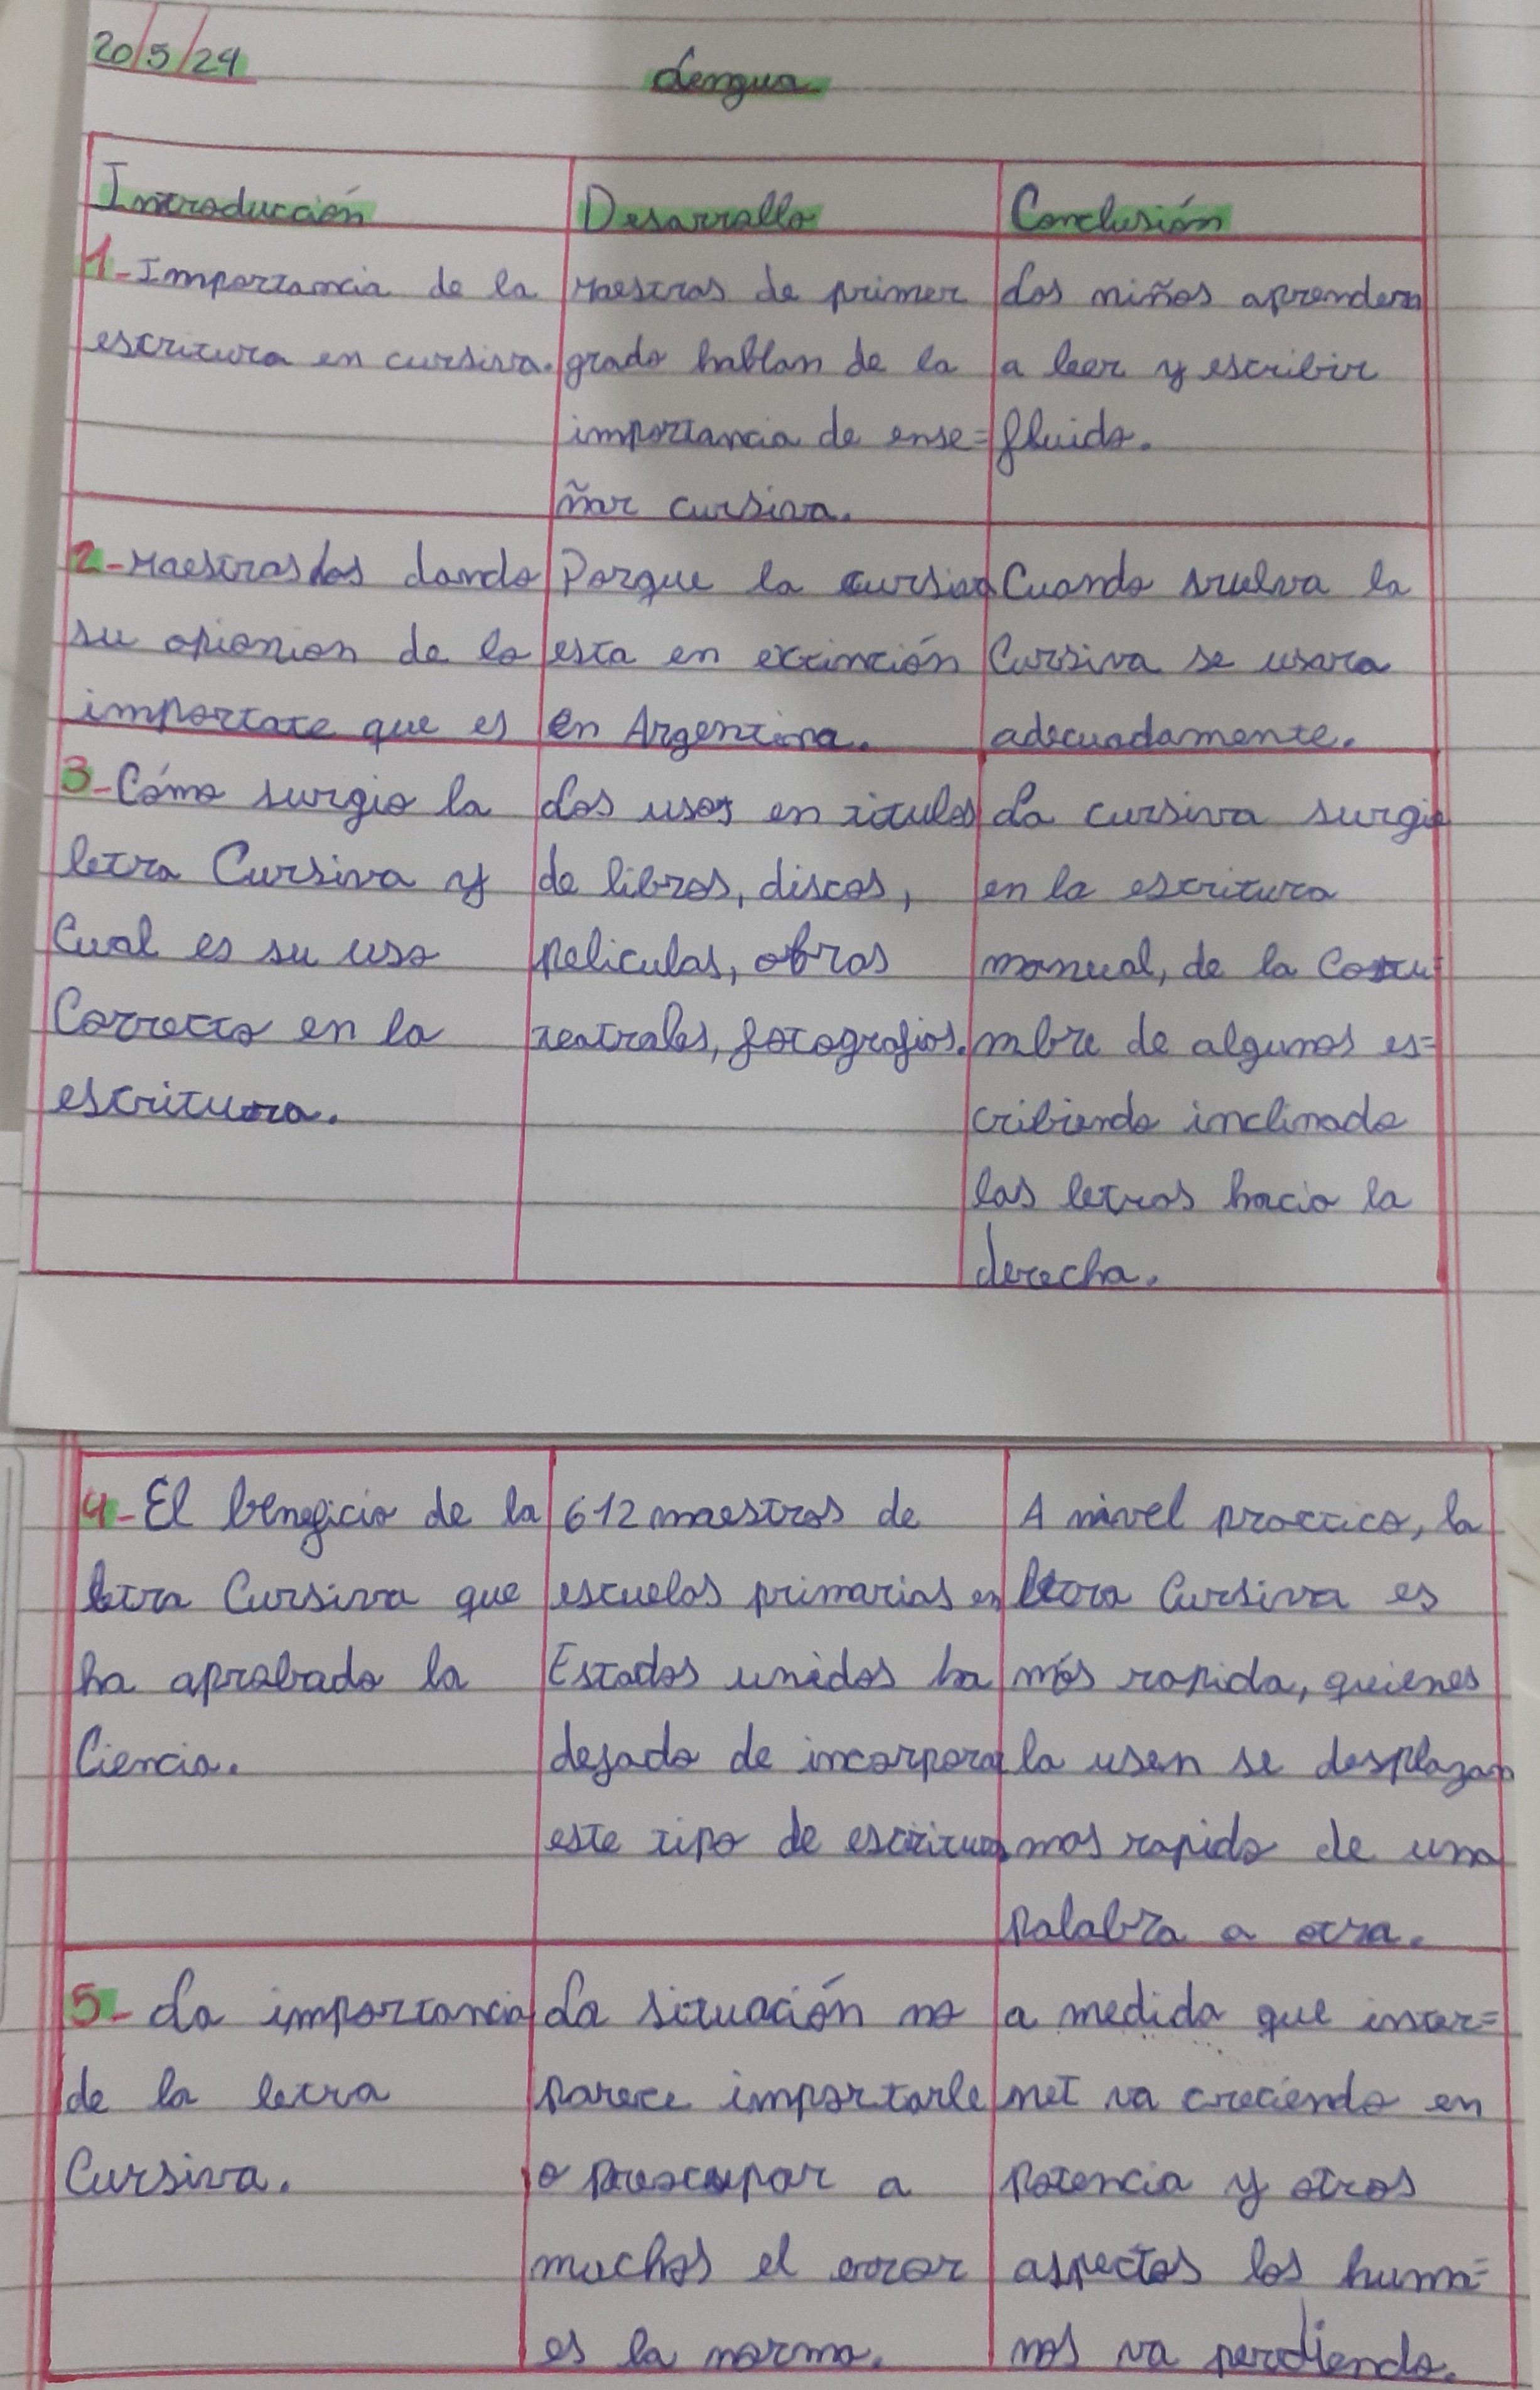 20/5/24
Lengua
Introducción
Desarrollo
Conclusión
1-Importancia de la
escritura en cursiva.
Maestras de primer
grado hablan de la
importancia de ense=
ñar cursiva.
Los niños aprenden
a leer y escribir
fluido.
2-Maestras los dando
su opionion de lo
importate que es
Porque la cursiva
esta en extinción
en Argentina.
Cuando vuelva la
Cursiva se usara
adecuadamente.
3-Cómo surgio la
letra Cursiva y
Cual es su uso
Correcto en la
escritura.
Los usos en titulos
de libros, discos,
peliculas, obras
teatrales, fotografias.
La cursiva surgio
en la escritura
manual, de la Costu
mbre de algunos es=
cribiendo inclinado
las letras hacia la
derecha.
4-El beneficio de la
letra Cursiva que
ha aprobado la
Ciencia.
612 maestros de
escuelas primarias en
Estados unidos ha
dejado de incorporar
este tipo de escritura
A nivel practico, la
letra Cursiva es
más rapida, quienes
la usen se desplazan
mas rapido de una
palabra a otra.
5-La importancia
de la letra
Cursiva.
La situación no
parece importarle
o preocupar a
muchos el error
es la norma.
a medida que inter=
net va creciendo en
potencia y otros
aspectos los huma=
nos va perdiendo.